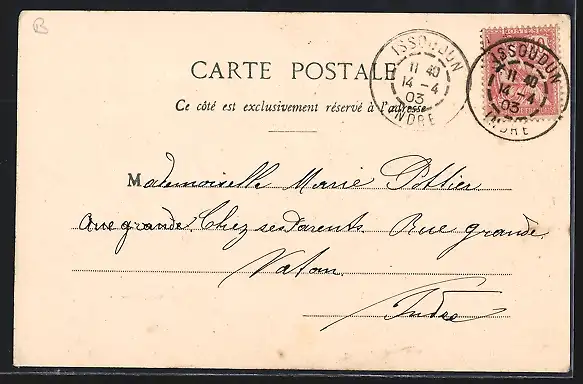 B
ISSOUDUN
11 40
14 - 4
03
INDRE
POSTES
10
ISSOUDUN
11 40
14 - 4
03
INDRE
CARTE POSTALE
Ce côté est exclusivement réservé à l'adresse
Mademoiselle Marie Pottier
Chez ses Parents. Rue grande.
Vatan.
Indre